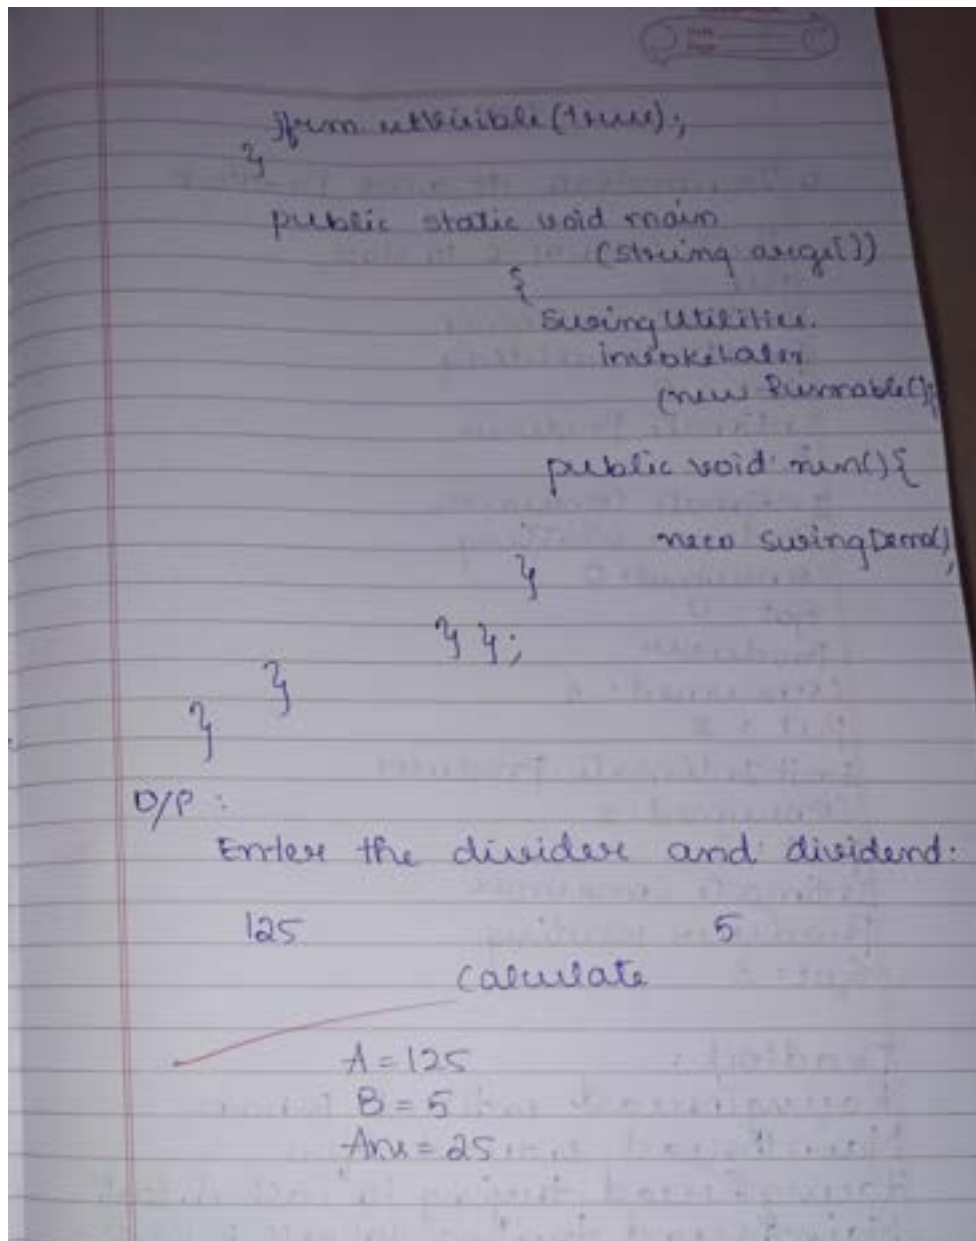 jfrm.setVisible(true);
}
public static void main
(string args[])
{
SwingUtilities.
invokeLater
(new Runnable(){
public void run(){
new SwingDemo();
}
}};
}
}
O/P :
Enter the divider and dividend:
125 5
Calculate
A = 125
B = 5
Ans = 25